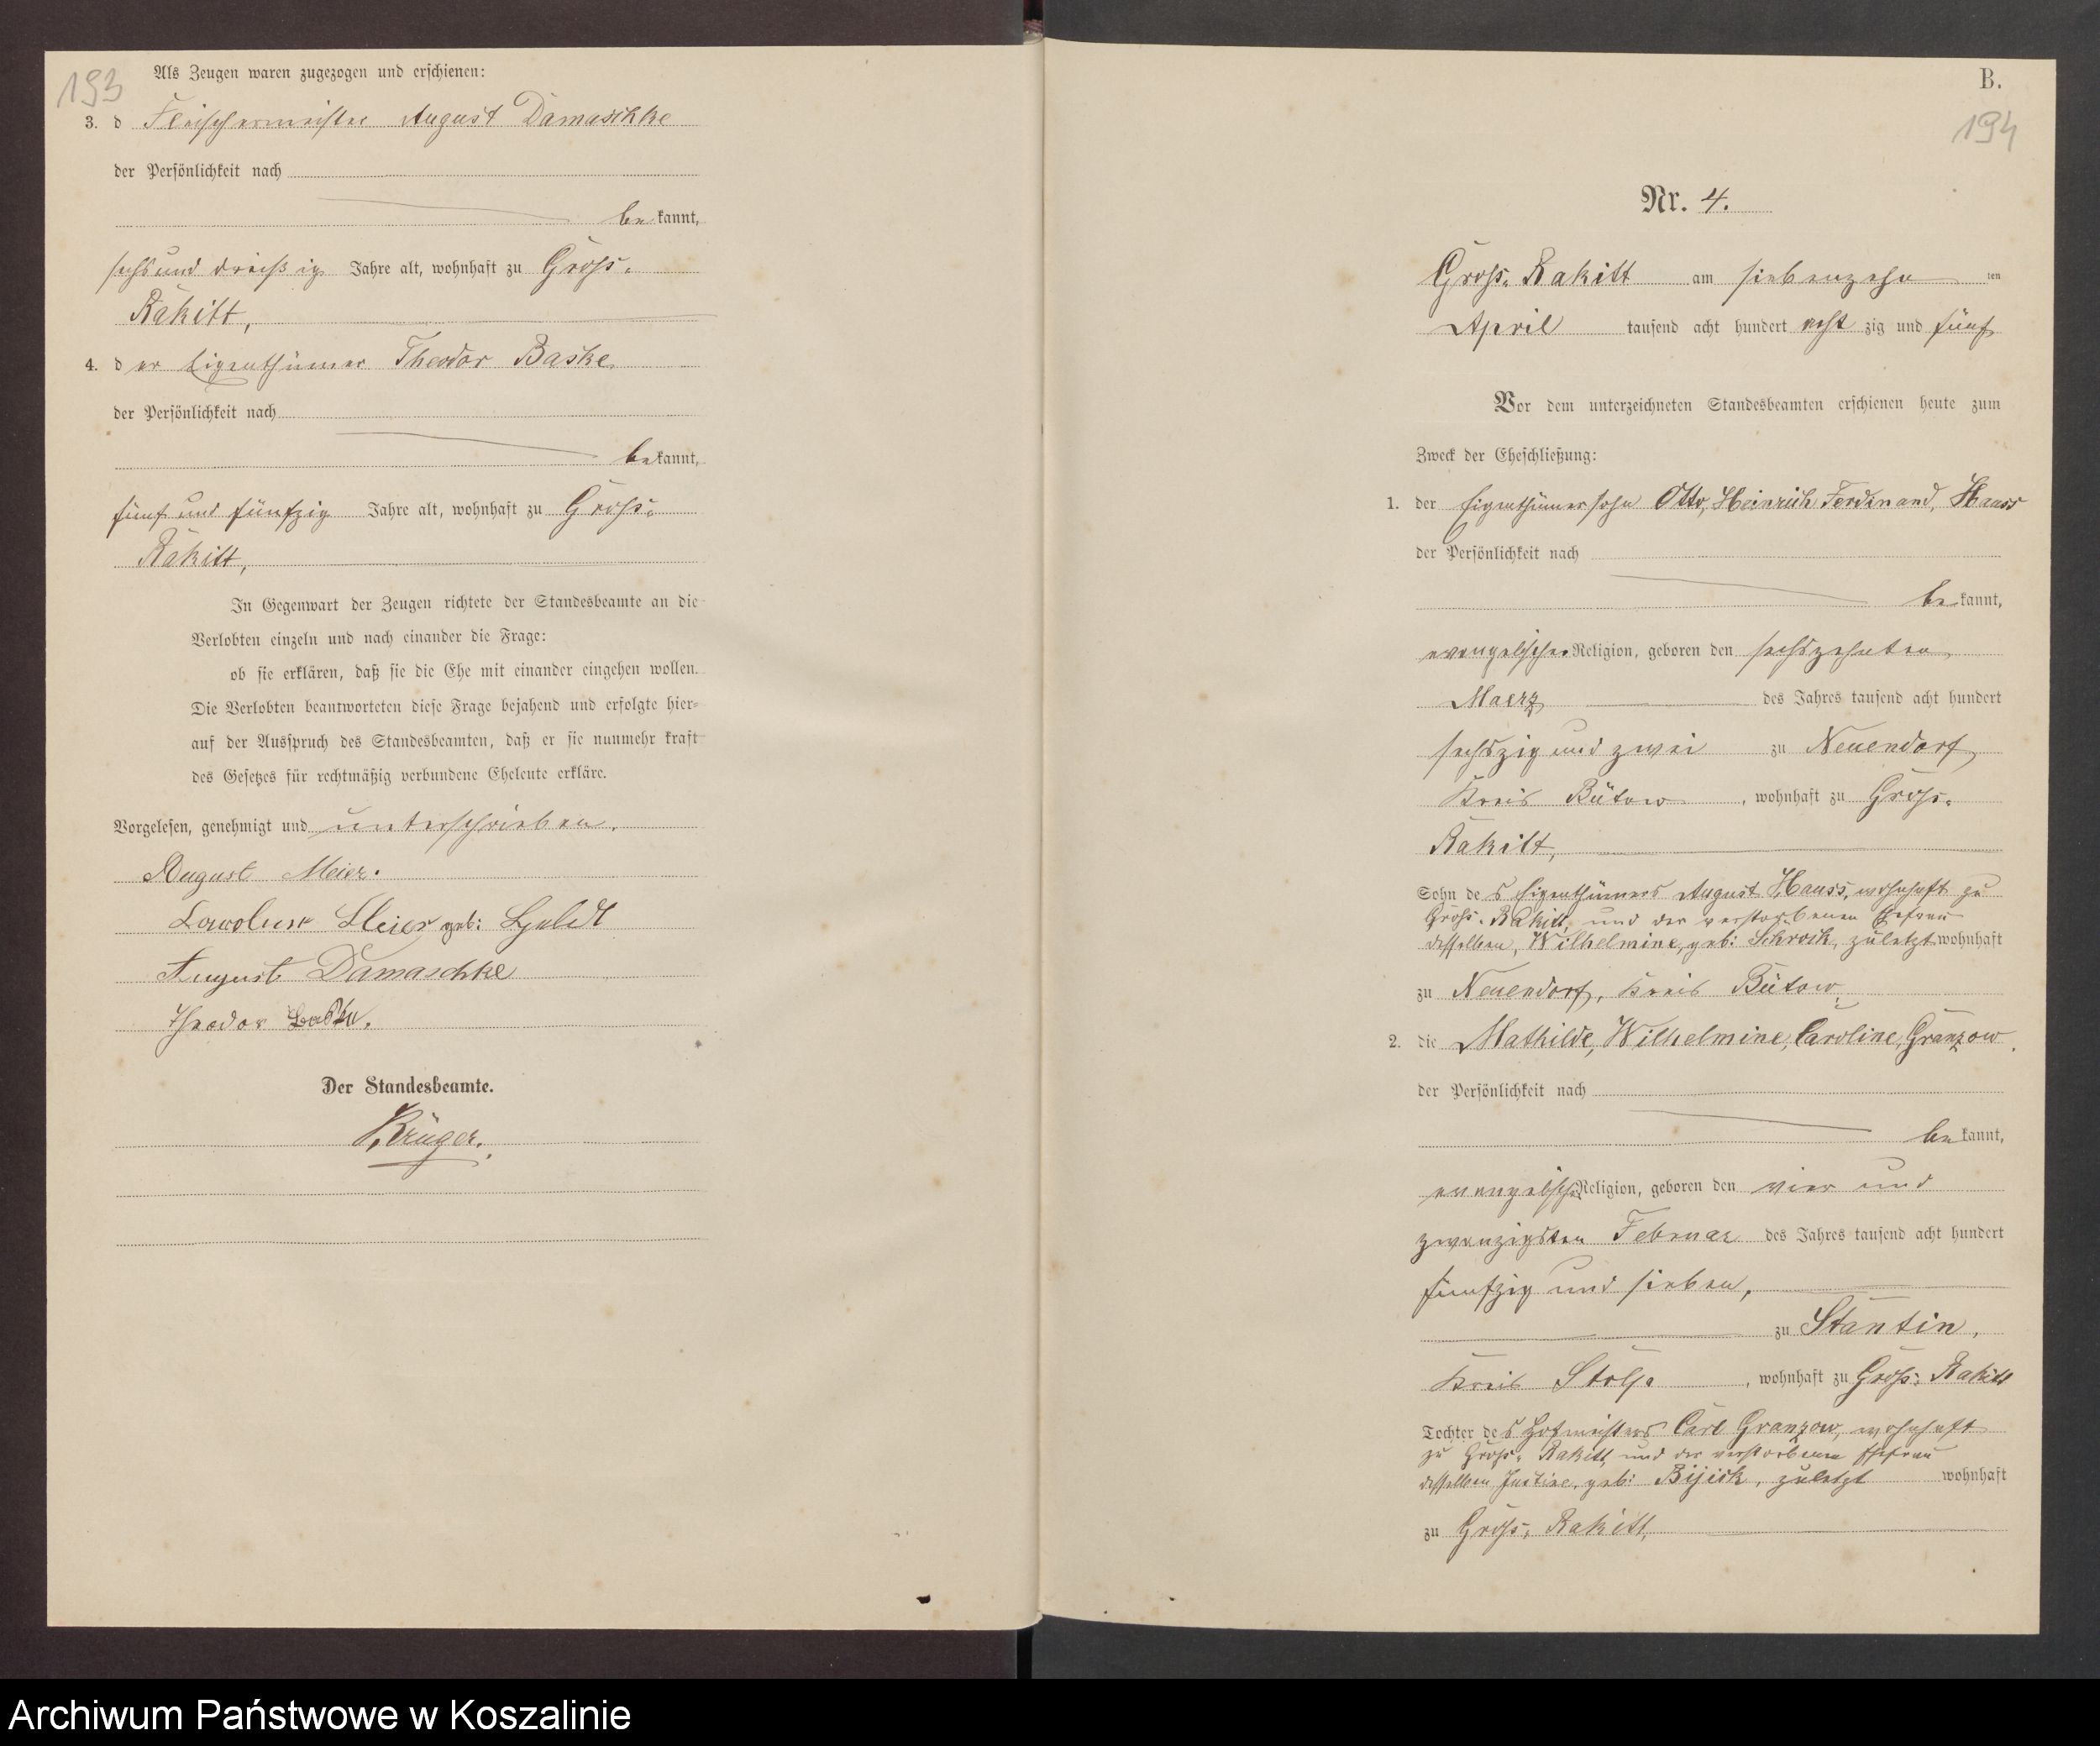 193
Als Zeugen waren zugezogen und erschienen:
3. d Fleischermeister August Damaschke
der Persönlichkeit nach
be kannt,
sechs und dreißig Jahre alt, wohnhaft zu Gross-
Rakitt,
4. d er Eigenthümer Theodor Baske
der Persönlichkeit nach
be kannt,
fünf und fünfzig Jahre alt, wohnhaft zu Gross-
Rakitt,
In Gegenwart der Zeugen richtete der Standesbeamte an die
Verlobten einzeln und nach einander die Frage:
ob sie erklären, daß sie die Ehe mit einander eingehen wollen.
Die Verlobten beantworteten diese Frage bejahend und erfolgte hier-
auf der Ausspruch des Standesbeamten, daß er sie nunmehr kraft
des Gesetzes für rechtmäßig verbundene Eheleute erkläre.
Vorgelesen, genehmigt und unterschrieben.
August Meier.
Meier geb:
August Damaschke
Theodor Baske.
Der Standesbeamte.
Krüger.
B.
194
Nr. 4.
Gross-Rakitt am siebenzehn ten
April tausend acht hundert acht zig und fünf
Vor dem unterzeichneten Standesbeamten erschienen heute zum
Zweck der Eheschließung:
1. der Eigenthümersohn Otto, Heinrich Ferdinand, Hauss
der Persönlichkeit nach
be kannt,
evangelischer Religion, geboren den sechszehnten
Maerz des Jahres tausend acht hundert
sechszig und zwei zu Neuendorf
Kreis Bütow, wohnhaft zu Gross-
Rakitt,
Sohn de s Eigenthümers August Hauss, wohnhaft zu
Gross-Rakitt, und der verstorbenen Ehefrau
desselben, Wilhelmine, geb: Schrock, zuletzt wohnhaft
zu Neuendorf, Kreis Bütow,
2. die Mathilde, Wilhelmine, Caroline, Granzow
der Persönlichkeit nach
be kannt,
evangelischer Religion, geboren den vier und
zwanzigsten Februar des Jahres tausend acht hundert
fünfzig und sieben,
zu Stantin,
Kreis Stolp, wohnhaft zu Gross-Rakitt
Tochter de s Hofmeisters Carl Granzow, wohnhaft
zu Gross-Rakitt, und der verstorbenen Ehefrau
desselben Justine, geb: zuletzt wohnhaft
zu Gross-Rakitt,
Archiwum Państwowe w Koszalinie